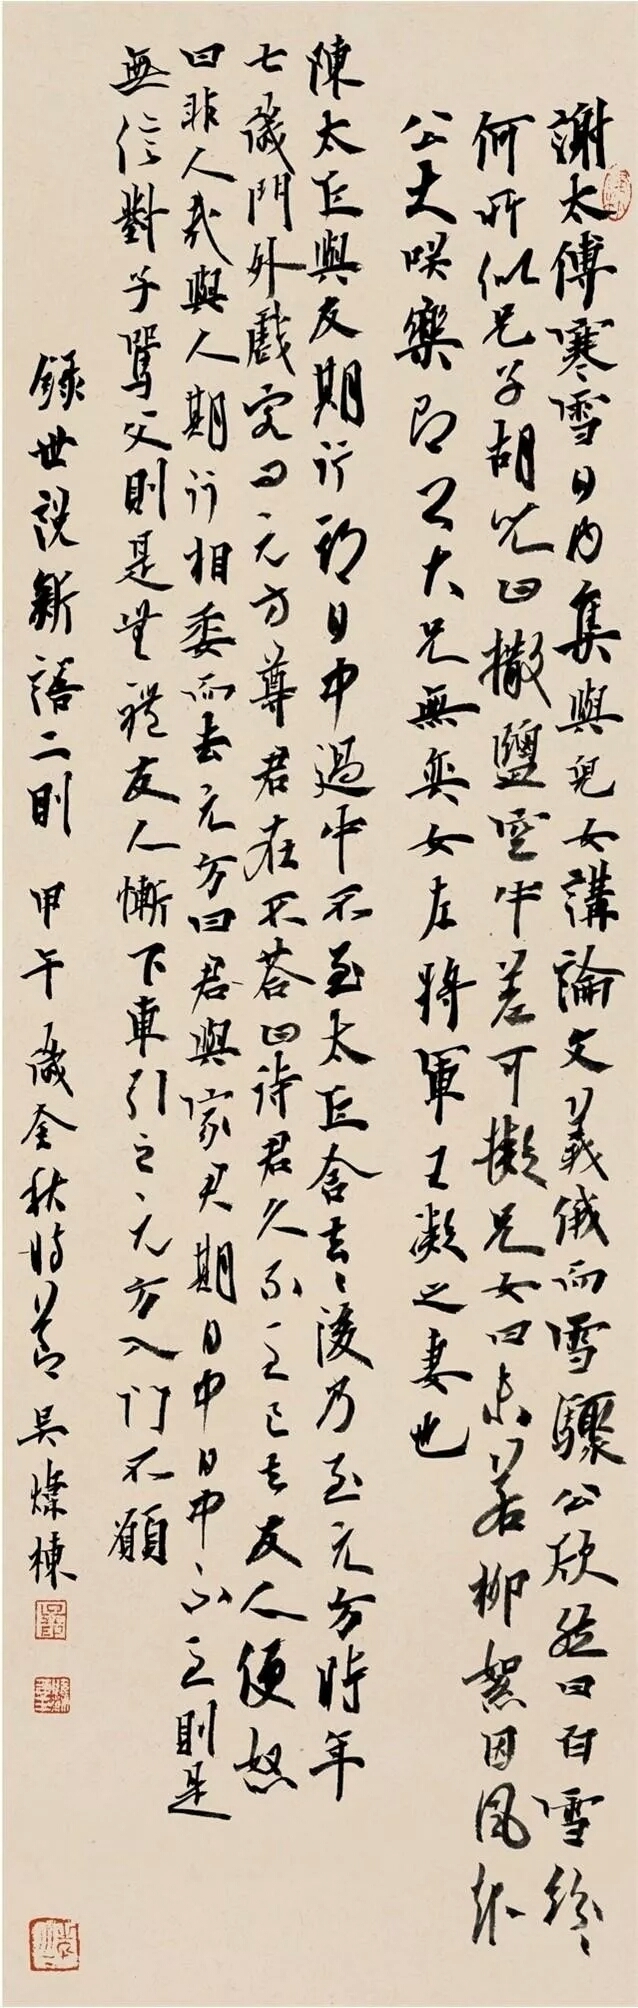 謝太傅寒雪日內集與兒女講論文義俄而雪驟公欣然曰白雪紛々
何所似兄子胡兒曰撒鹽空中差可擬兄女曰未若柳絮因風起
公大咲樂即公大兄無奕女左將軍王凝之妻也
陳太丘與友期行期日中過中不至太丘舍去々後乃至元方時年
七歲門外戲客问元方尊君在不荅曰待君久不至已去友人便怒
曰非人哉與人期行相委而去元方曰君與家君期日中日中不至則是
無信對子罵父則是無禮友人慚下車引之元方入門不顧
錄世說新語二則 甲午歲金秋時節 吳燦棟